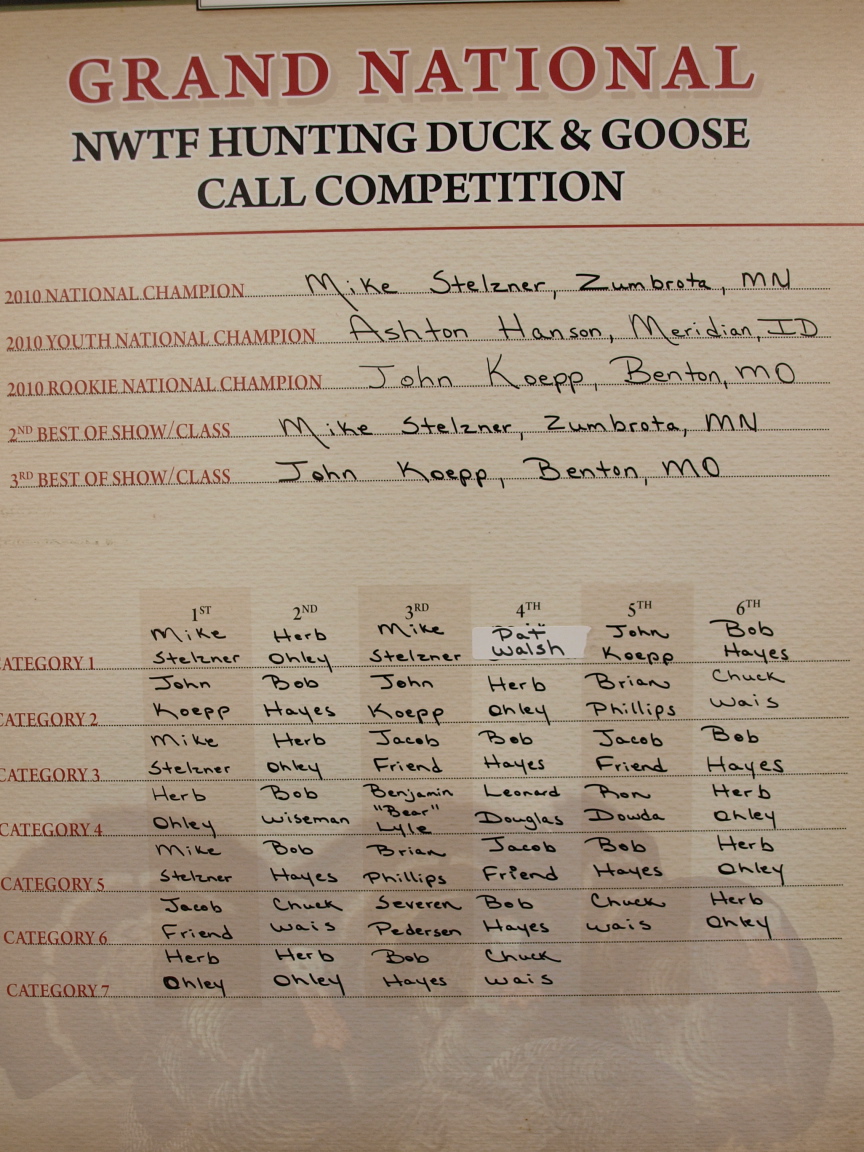 GRAND NATIONAL
NWTF HUNTING DUCK & GOOSE
CALL COMPETITION
2010 NATIONAL CHAMPION Mike Stelzner, Zumbrota, MN
2010 YOUTH NATIONAL CHAMPION Ashton Hanson, Meridian, ID
2010 ROOKIE NATIONAL CHAMPION John Koepp, Benton, MO
2ND BEST OF SHOW/CLASS Mike Stelzner, Zumbrota, MN
3RD BEST OF SHOW/CLASS John Koepp, Benton, MO
1ST 2ND 3RD 4TH 5TH 6TH
Mike Herb Mike Pat John Bob
CATEGORY 1 Stelzner Ohley Stelzner Walsh Koepp Hayes
John Bob John Herb Brian Chuck
CATEGORY 2 Koepp Hayes Koepp Ohley Phillips Wais
Mike Herb Jacob Bob Jacob Bob
CATEGORY 3 Stelzner Ohley Friend Hayes Friend Hayes
Herb Bob Benjamin Leonard Ron Herb
"Bear"
CATEGORY 4 Ohley Wiseman Lyle Douglas Dowda Ohley
Mike Bob Brian Jacob Bob Herb
CATEGORY 5 Stelzner Hayes Phillips Friend Hayes Ohley
Jacob Chuck Severen Bob Chuck Herb
CATEGORY 6 Friend Wais Pedersen Hayes Wais Ohley
Herb Herb Bob Chuck
CATEGORY 7 Ohley Ohley Hayes Wais